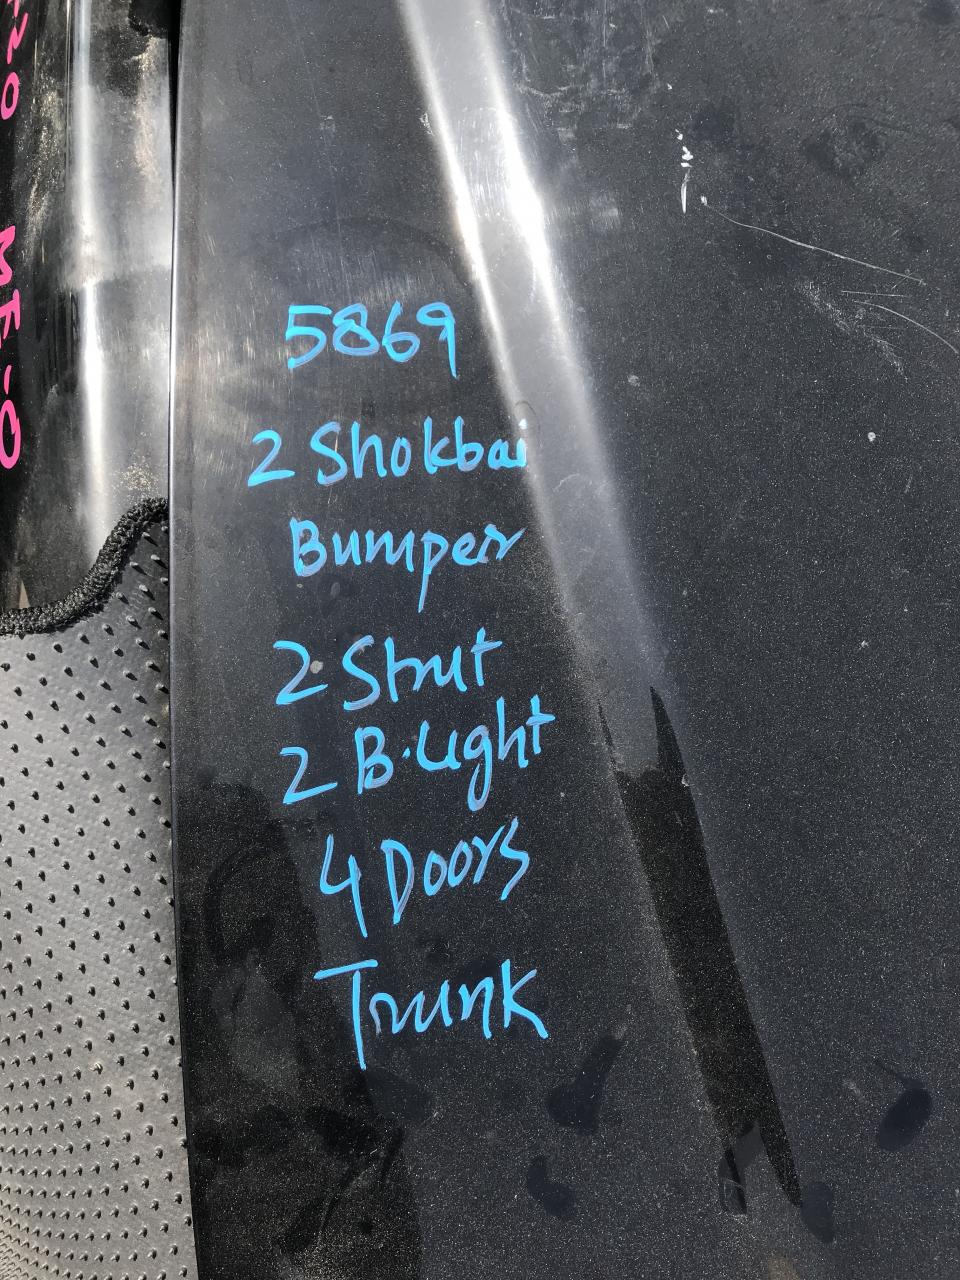 5869
2 Shokbai
Bumper
2 Strut
2 B.Light
4 Doors
Trunk